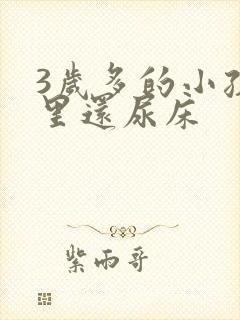 3歲多的小孩
里還尿床
紫雨哥